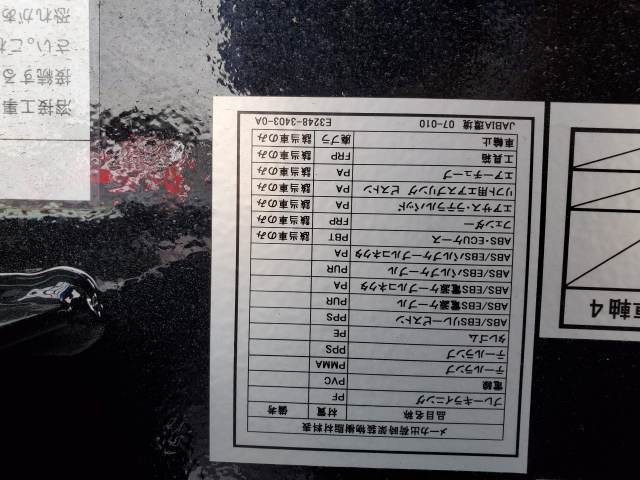 メーカ出荷時架装物樹脂材料表
品目名称 材質 備考
ブレーキライニング PF
電線 PVC
テールランプ PMMA
テールランプ PPS
タレゴム PE
ABS/EBSリレーピストン PPS
ABS/EBS電源ケーブル PUR
ABS/EBS電源ケーブルコネクタ PA
ABS/EBSバルブケーブル PUR
ABS/EBSバルブケーブルコネクタ PA
ABS・ECUケース PBT 該当車のみ
フェンダー FRP 該当車のみ
エアサス・ラテラルパッド PA 該当車のみ
リフト用エアスプリング ピストン PA 該当車のみ
エアーチューブ PA 該当車のみ
工具箱 FRP 該当車のみ
車輪止 廃プラ 該当車のみ
JABIA環境 07-010 E3248-3403-0A
軸4
溶接工事
接続する
さい。これ
恐れがあ